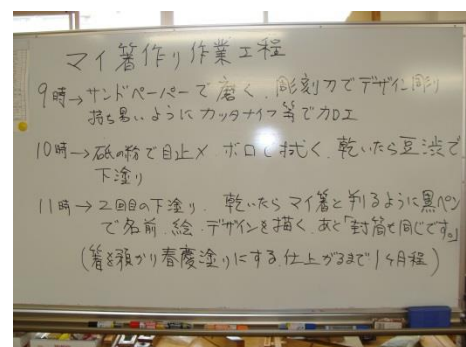 マイ箸作り作業工程
9時→サンドペーパーで磨く、彫刻刀でデザイン彫り
持ち易いようにカッタナイフ等で加工
10時→砥の粉で目止メ、ボロで拭く、乾いたら豆渋で
下塗り
11時→2回目の下塗り、乾いたらマイ箸と判るように黒ペン
で名前、絵、デザインを描く、あと「封筒も同じです。」
(箸を預かり春慶塗りにする、仕上がるまで1ヶ月程)